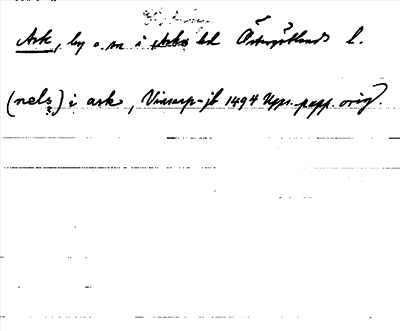 Ask, by o. sn i Asks hd Östergötlands l.
(nels) i ask, Vinnerp-jb 1494 Upps. papp. orig.